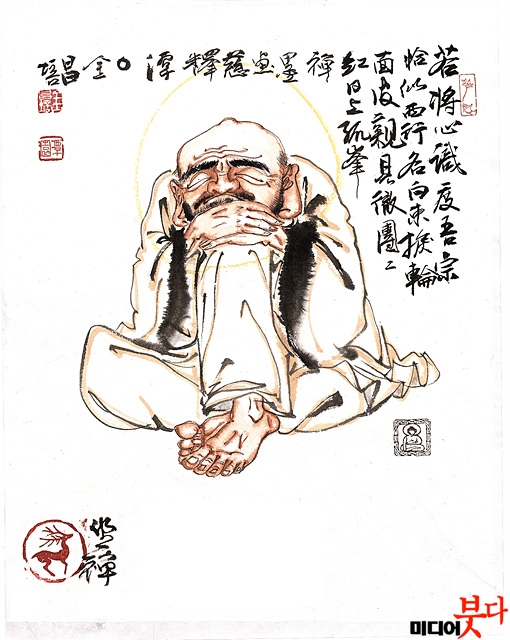 若將心識度吾宗
恰似西行各向東捩輪
面皮親見徹團二
紅日上孤峯
禪墨画慈釋潭〇全昌培
禪
미디어붓다